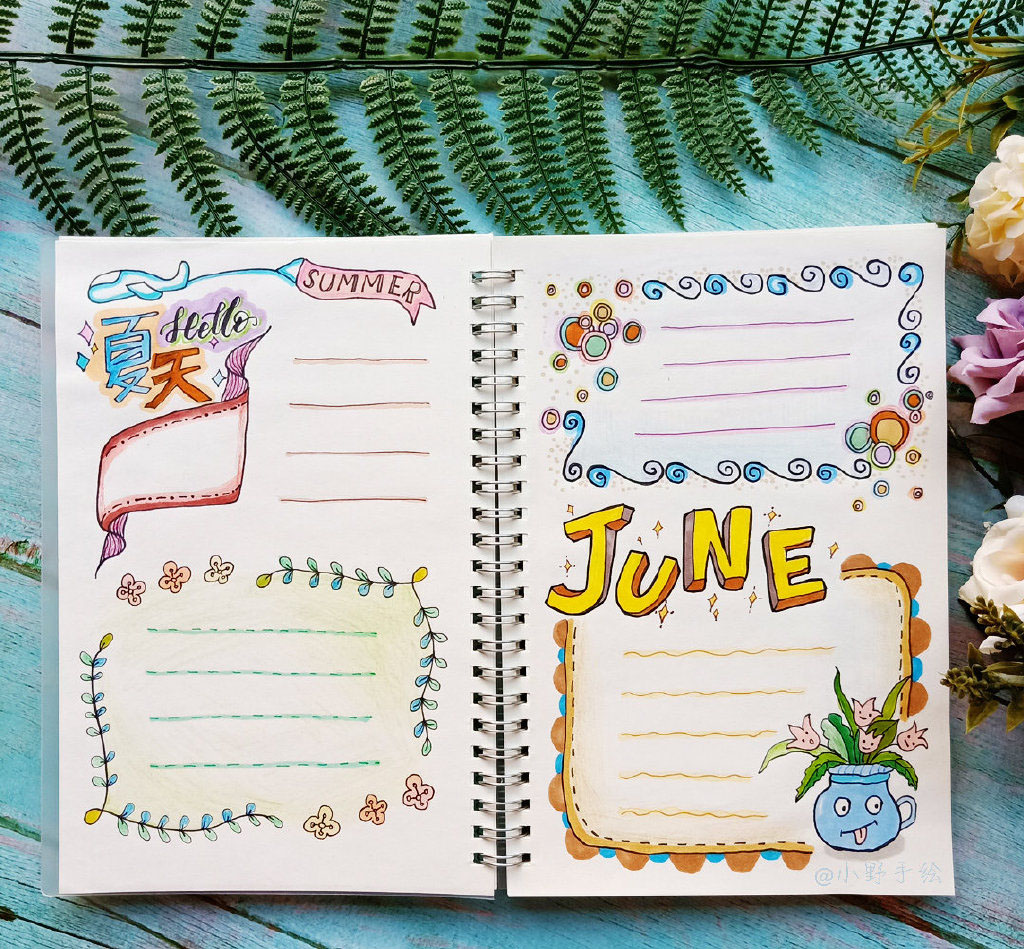 SUMMER
Hello
夏天
JUNE
@小野手绘